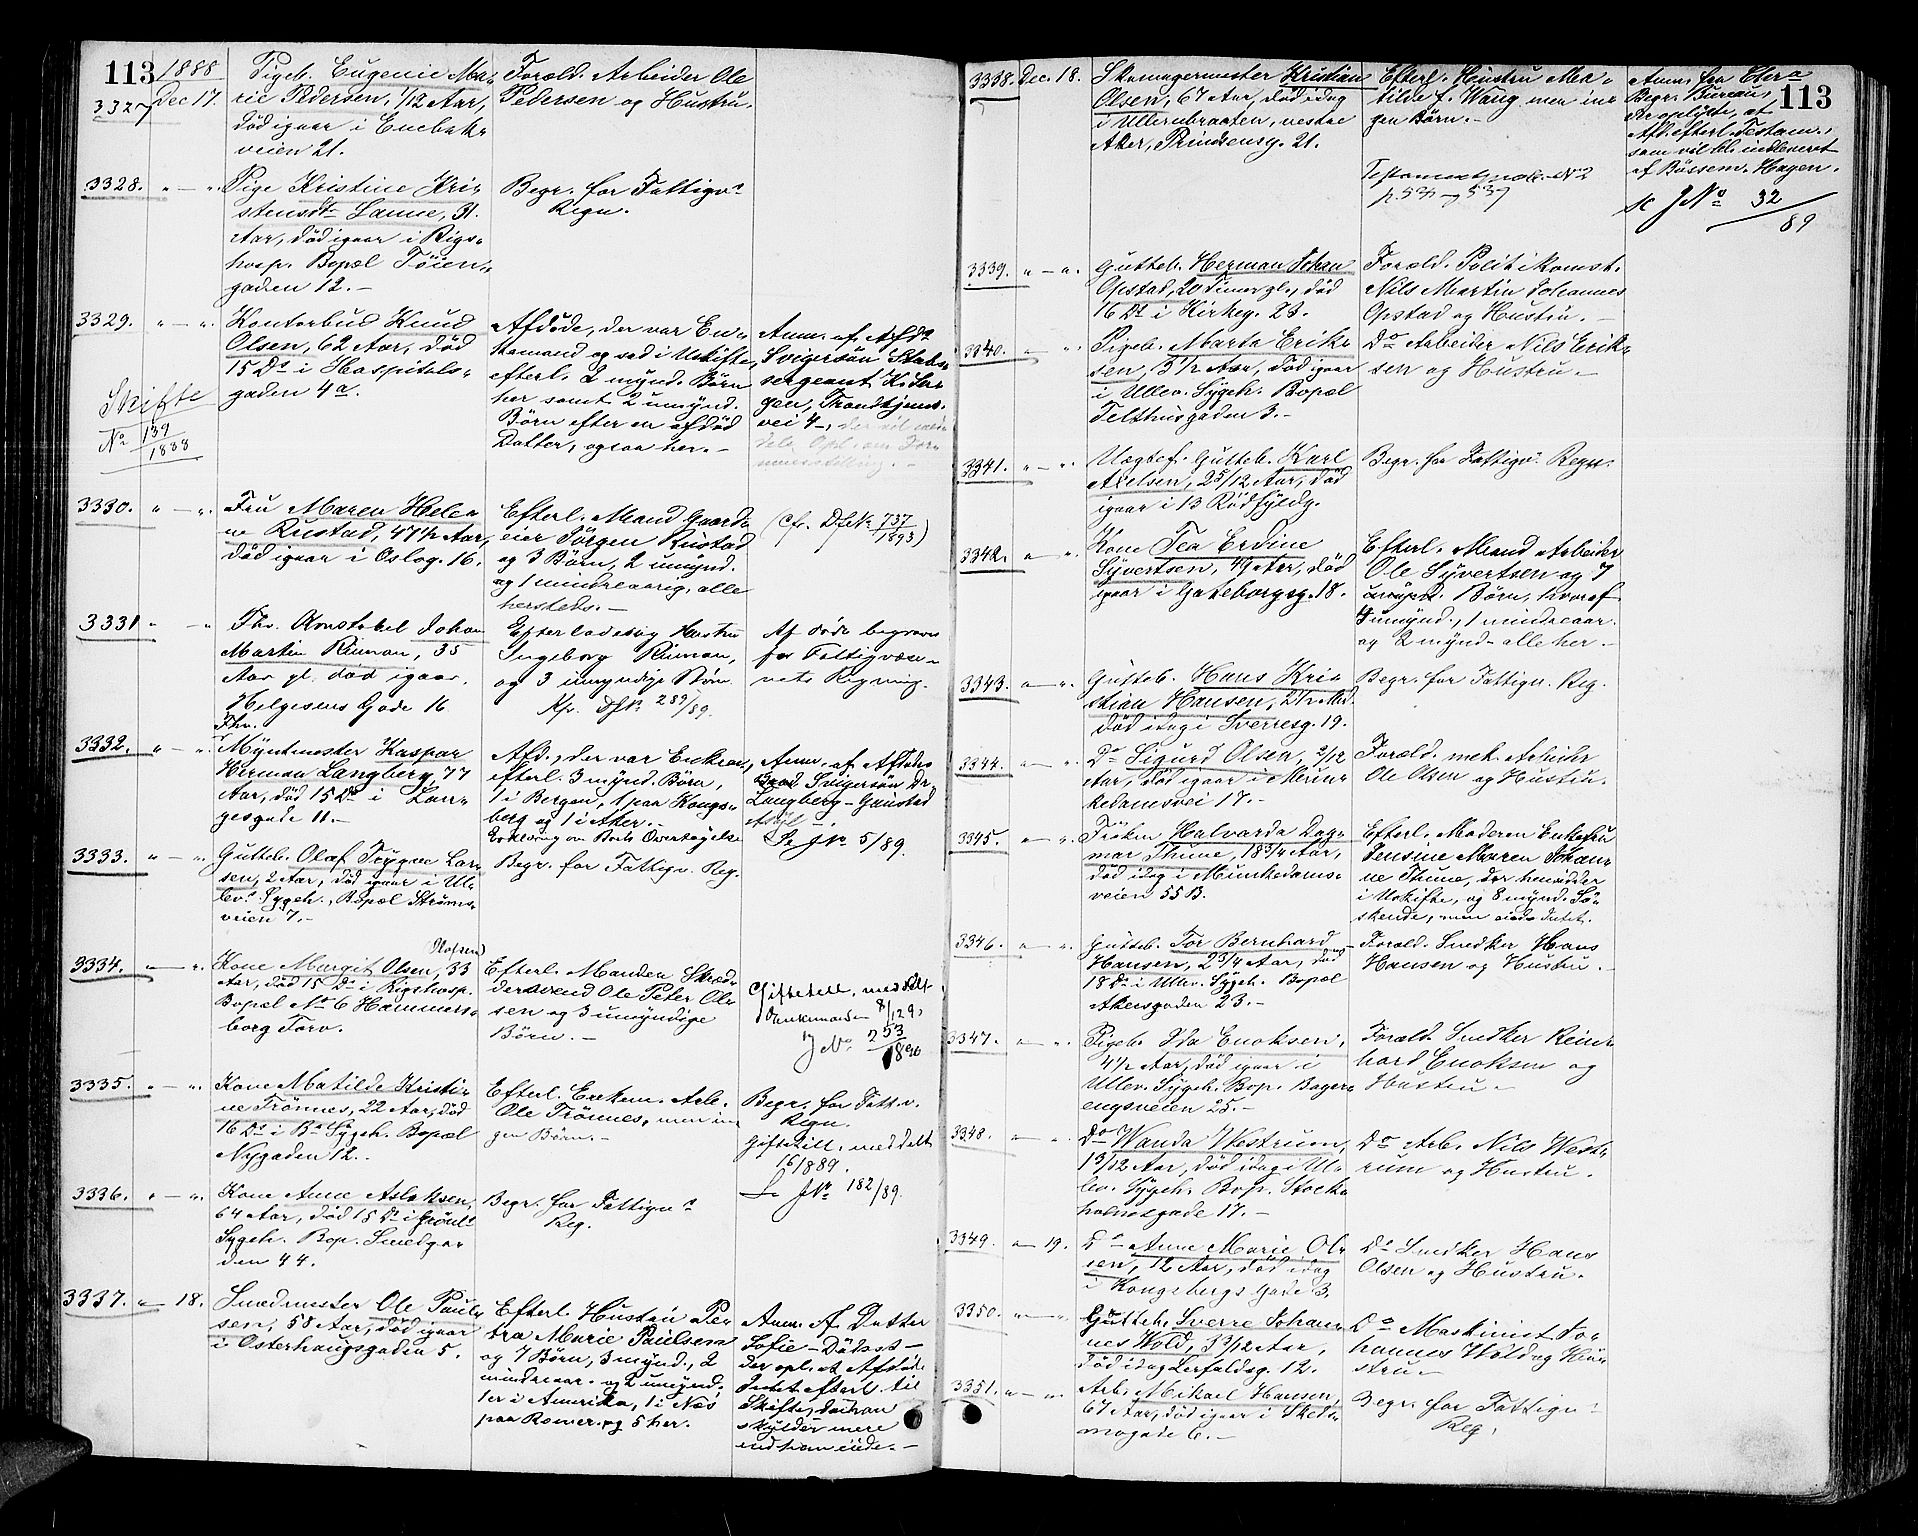 113
1888
3327
Dec 17.
Pigeb. Eugenie Ma-
rie Pedersen, 1/12 Aar,
död igaar i Enebak-
veien 21.
Foræld. Arbeider Ole
Pedersen og Hustru.
3328. " — "
Pige Kristine Kri-
stensdtr Sanne, 31
Aar, död igaar i Rigs-
hosp. Bopæl Töien-
gaden 12. —
Begr. for Fattigv.
Regn.
3329. " — "
Kontorbud Knud
Olsen, 62 Aar, död
15 Ds i Hospitals-
gaden 4a.
Skifte
No 139/1888
Afdöde, der var En-
kemand og sad i Uskifte,
efterl. 2 mynd. Börn
her samt 2 umynd.
Börn efter en afdöd
Datter, ogsaa her. —
Anm. af Afdes
Svigersön Stads-
sergeant
Trondhjems-
vei 4,
3330. " — "
Fru Maren Hele-
ne Rustad, 47 1/2 Aar,
död igaar i Oslog. 16.
Efterl. Mand Gaard-
eier Jörgen Rustad
og 3 Börn, 2 umynd.
og 1 mindreaarig, alle
hersteds. —
(Cfr. DfNo 737/1893)
3331 " — "
Fhv. Konstabel Johan
Martin Riman, 35
Aar gl. död igaar.
Helgesens Gade 16
Efterladesig Hustru
Ingeborg Riman,
og 3 umyndige Börn
Kfr. DfNo 289/89.
Afdöde begraves
for Fattigvæse-
nets Regning.
3332. " — "
Fhv.
Myntmester Kaspar
Herman Langberg, 77
Aar, död 15 Ds i Lan-
gesgade 11. —
Afd., der var Enkem.,
efterl. 3 mynd. Börn,
1 i Bergen, 1 paa Kongs-
berg og 1 i Aker. —
Erklæring om Boets Overtagelse
Anm. af Afdödes
Svigersön Dr.
Langberg — Gaustad
Asyl —
Se JNo 5/89.
3333. " — "
Gutteb. Olaf Trygve Lar-
sen, 2 Aar, död igaar i Ul-
lev. Sygeh., Bopæl Ströms-
veien 7. —
Begr. for Fattigv. Reg.
3334. " — "
(Olafsen)
Kone Margit Olsen, 33
Aar, död 15 Ds i Rigshosp.
Bopæl No 6 Hammers-
borg Torv.
Efterl. Manden Skræd-
dersvend Ole Peter Ol-
sen og 3 umyndige
Börn. —
Giftetill. meddelt
Enkemanden
JNo 253/1890
3335. " — "
Kone Matilde Kristi-
ne Trönnes, 22 Aar, död
16 Ds i Bs Sygeh. Bopæl
Nygaden 12.
Efterl. Enkem. Arb.
Ole Trönnes, men in-
gen Börn. —
Begr. for Fatt.v.
Regn.
Giftetill. meddelt
16/889.
Se JNo 182/89.
3336. " — "
Kone Anne Aslaksen,
64 Aar, död 15 Ds i Grönl.
Sygeh. Bop. Smedga-
den 44.
Begr. for Fattigv.
Reg.
3337. " — 18.
Smedmester Ole Paul-
sen, 58 Aar, död igaar
i Osterhausgaden 5.
Efterl. Hustru Pe-
tra Marie Paulsen
og 7 Börn, 3 mynd., 2
mindreaar. og 2 umynd.
1 er i Amerika, 1 i Næs
paa Romer. og 5 her.
Anm. Af Datter
Sofie —
der opl. at Afdöde
Intet efterl. til
Skifte, da han
skylder mere
end han eiede. —
113
3338. Dec. 18.
Skomagermester Kristian
Olsen, 67 Aar, död idag
i Ullernbraaten, vestre
Aker, Prindsensg. 21.
Efterl. Hustru Ma-
tilde f. Wang men in-
gen Börn. —
Testamentprot. No 2
p. 537
Anm. fra
Begr. Bureau,
der oplyste, at
Afd. efterl. Testam.,
som vil bli indleveret
af Bössem. Hagen.
se JNo 32/89
3339. " — "
Gutteb. Herman Johan
Opstad, 20 Timer gl., död
16 Ds i Kirkeg. 23.
Foræld. Politikonst.
Nils Martin Johannes
Opstad og Hustru. —
3340. " — "
Pigeb. Marta Erik-
sen, 3 1/2 Aar, död igaar
i Ullev. Sygeh. Bopæl
Telthusgaden 3. —
Do Arbeider Nils Erik-
sen og Hustru. —
3341. " — "
Uægtef. Gutteb. Karl
Axelsen, 2 5/12 Aar, död
igaar i 13 Rödfyldg.
Begr. for Fattigv. Regn.
3342. " — "
Kone Tea Erdine
Syvertsen, 49 Aar, död
igaar i Göteborgsg. 18.
Efterl. Mand Arbeider
Ole Syvertsen og 7
Börn, hvoraf
4 umynd., 1 mindreaar.
og 2 mynd. alle her. —
3343. " — "
Gutteb. Hans Kri-
stian Hansen, 2 1/2 Md.
död idag i Sverresg. 19.
Begr. for Fattigv. Reg.
3344. " — "
Do Sigurd Olsen, 2/12
Aar, död igaar i Mun-
kedamsvei 17. —
Foræld. mek. Arbeider
Ole Olsen og Hustru.
3345. " — "
Fröken Halvarda Dag-
mar Thune, 18 3/4 Aar,
död idag i Munkedams-
veien 55 B.
Efterl. Moderen Enkefru
Jensine Maren Johan-
ne Thune, der hensidder
i Uskifte, og 8 mynd. Sö-
skende, men eiede Intet.
3346. " — "
Gutteb. Tor Bernhard
Hansen, 2 3/4 Aar, död
18 Ds i Ullev. Sygeh. Bopæl
Akersgaden 23. —
Foræld. Snedker Hans
Hansen og Hustru. —
3347. " — "
Pigeb. Ida Enoksen,
4 1/2 Aar, död igaar i
Ullev. Sygeh. Bop. Bager-
engsveien 25. —
Foræld. Snedker Rein-
hard Enoksen og
Hustru. —
3348. " — "
Do Wanda Westrum,
1 3/12 Aar, död idag i Ul-
lev. Sygeh. Bop. Stock-
holmsgade 17. —
Do Arb. Nils West-
rum og Hustru.
3349. " — 19.
Do Anne Marie Ol-
sen, 12 Aar, död idag
i Kongsbergs Gade 3.
Do Snedker Hans
Olsen og Hustru.
3350. " — "
Gutteb. Sverre Johan-
nes Wold, 3 3/12 Aar,
död idag Lerfaldsg. 12.
Do Maskinist Jo-
hannes Wold og Hu-
stru —
3351. " — "
Arb. Mikael Hansen,
67 Aar, död igaar i Sked-
mogade 6. —
Begr. for Fattigv.
Reg.